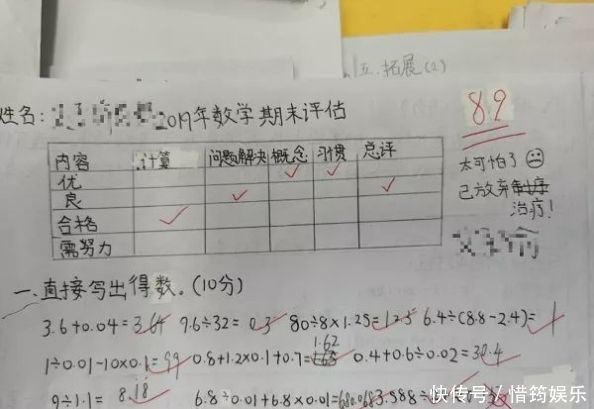 五、拓展(2)
姓名: 2019年数学期末评估
89
内容 计算 问题解决 概念 习惯 总评
优
良
合格
需努力
太可怕了
已放弃
治疗!
一、直接写出得数。(10分)
3.6+0.04=3.64 9.6÷32=0.3 80÷8×1.25=12.5 6.4÷(8.8-2.4)=1
1÷0.01-10×0.1=99 0.8+1.2×0.1+0.7=1.62 0.4+0.6÷0.02=30.4
9÷1.1=8.18 6.8÷0.01+6.8×0.01=680.068 3.588÷
快传号/惜筠娱乐